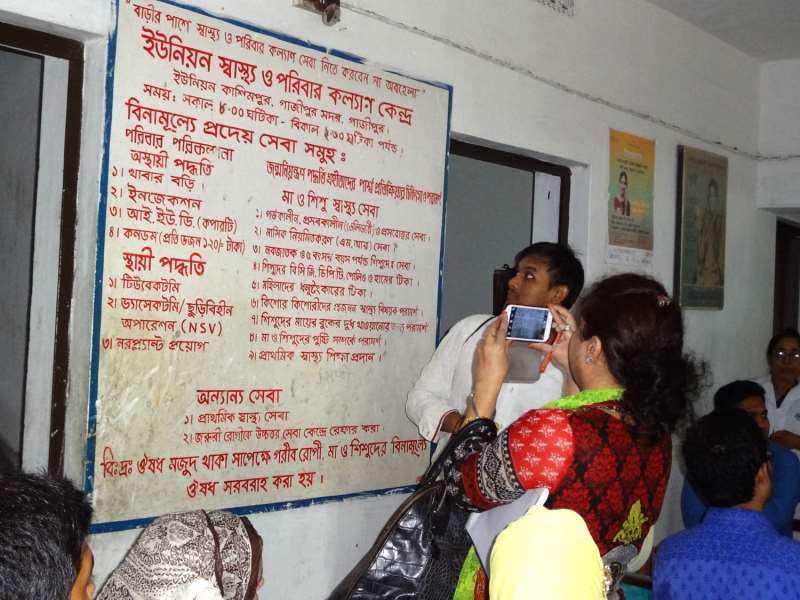 "বাড়ীর পাশে স্বাস্থ্য ও পরিবার কল্যাণ সেবা নিতে করবেন না অবহেলা"
ইউনিয়ন স্বাস্থ্য ও পরিবার কল্যাণ কেন্দ্র
ইউনিয়ন কাশিমপুর, গাজীপুর সদর, গাজীপুর।
সময়ঃ সকাল ৮·০০ ঘটিকা - বিকাল ২·৩০ ঘটিকা পর্যন্ত।
বিনামূল্যে প্রদেয় সেবা সমুহ ঃ
পরিবার পরিকল্পনা
অস্থায়ী পদ্ধতি
১। খাবার বড়ি।
২। ইনজেকশন
৩। আই.ইউ.ডি. (কপারটি)
৪। কনডম (প্রতি ডজন ১·২০/- টাকা)
স্থায়ী পদ্ধতি
১। টিউবেকটমি
২। ভ্যাসেকটমি/ ছুড়িবিহীন
অপারেশন (NSV)
৩। নরপ্ল্যান্ট প্রয়োগ
জন্মনিয়ন্ত্রণ পদ্ধতি গ্রহীতাদের পার্শ্ব প্রতিক্রিয়ার চিকিৎসা ও পরামর্শ
মা ও শিশু স্বাস্থ্য সেবা
১। গর্ভকালীন, প্রসবকালীন (ডেলিভারী) ও প্রসবোত্তর সেবা।
২। মাসিক নিয়মিতকরণ (এম, আর) সেবা।
৩। নবজাতক ৪৫ বৎসর বয়স পর্যন্ত শিশুদের সেবা।
৪। শিশুদের বি সি জি, ডি পি টি, পোলিও ও হামের টিকা।
৫। মহিলাদের ধনুষ্টংকারের টিকা।
৬। কিশোর কিশোরীদের প্রজনন স্বাস্থ্য বিষয়ক পরামর্শ।
৭। শিশুদের মায়ের বুকের দুধ খাওয়ানোর জন্য পরামর্শ
৮। মা ও শিশুদের পুষ্টি সম্পর্কে পরামর্শ।
৯। প্রাথমিক স্বাস্থ্য শিক্ষা প্রদান।
অন্যান্য সেবা
১। প্রাথমিক স্বাস্থ্য সেবা
২। জরুরী রোগীকে উচ্চতর সেবা কেন্দ্রে রেফার করা
বিঃদ্রঃ ঔষধ মজুদ থাকা সাপেক্ষে গরীব রোগী, মা ও শিশুদের বিনামূল্যে
ঔষধ সরবরাহ করা হয়।